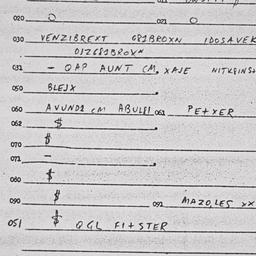 020 O 021 O
030 VENZIBREXT 681BROXN IDOSAVEK
DIZ681BROXN
031 - OAP AUNT CM, XAJE
050 BLEJX
060 AVUNDE CM ABULFI 061 PE+XER
062 $
070 $
071 -
080 $
090 $ 091 MAZO,LES XX
051 $ OGL FI+STER